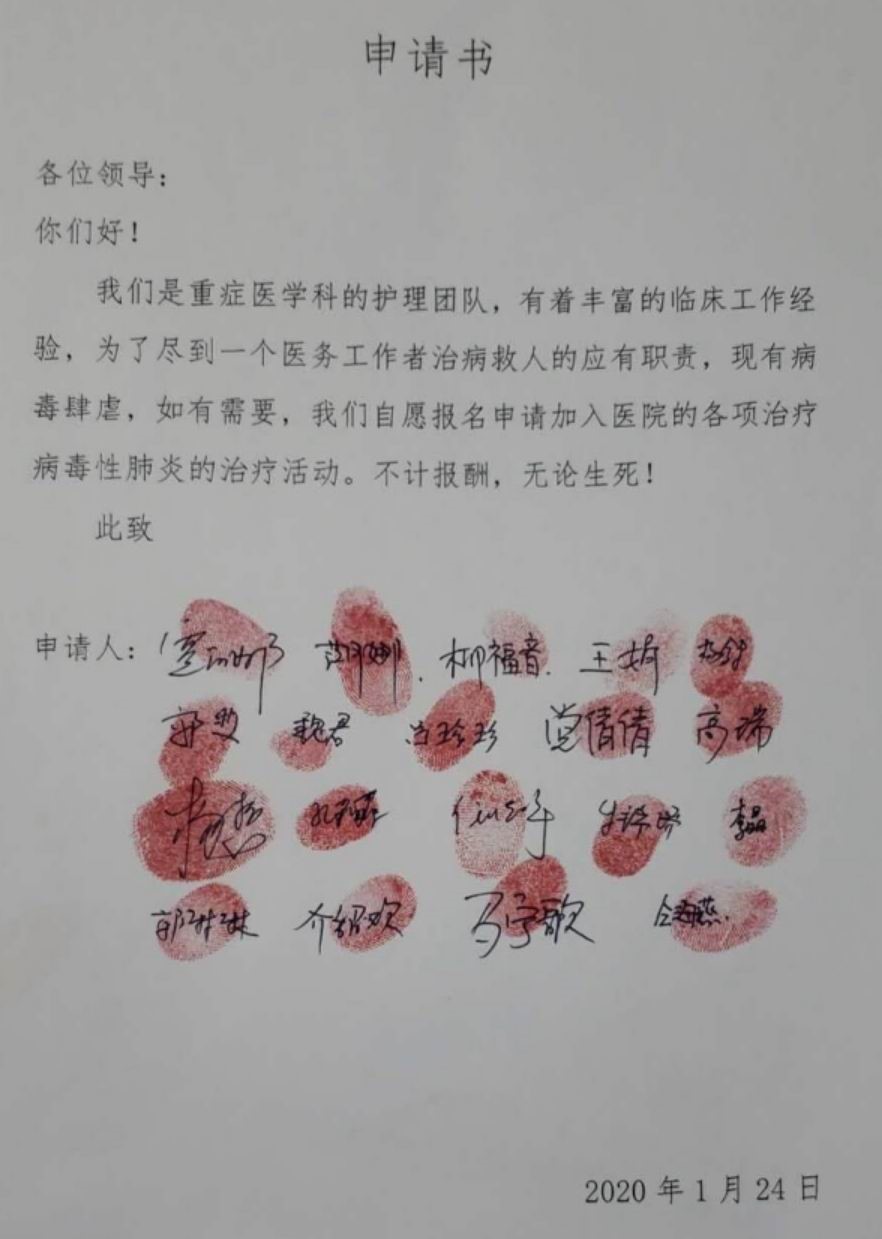 申请书
各位领导：
你们好！
我们是重症医学科的护理团队，有着丰富的临床工作经
验，为了尽到一个医务工作者治病救人的应有职责，现有病
毒肆虐，如有需要，我们自愿报名申请加入医院的各项治疗
病毒性肺炎的治疗活动。不计报酬，无论生死！
此致
申请人： 柳福音
魏君 党倩倩 高瑞
李晶
郭琳琳 介绍欢 马宁歌
2020 年 1 月 24 日